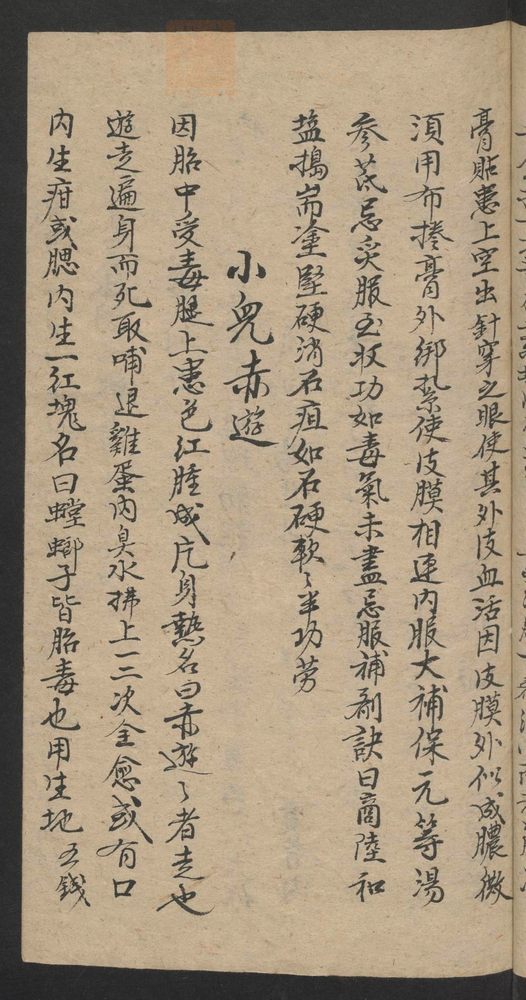 膏貼患上空出針穿之眼使其外皮血活因皮膜外似成膿微
須用布捲膏外綁紮使皮膜相連內服大補保元等湯
參芪忌炙服立收功如毒氣未盡忌服補劑訣曰商陸和
塩搗耑塗堅硬消石疽如石硬軟〻半功劳
小兒赤遊
因胎中受毒腿上患色紅腫成片身熱名曰赤遊〻者走也
遊走遍身而死取哺退雞蛋內臭水拂上一二次全愈或有口
內生疳或腮內生一紅塊名曰螳螂子皆胎毒也用生地五錢